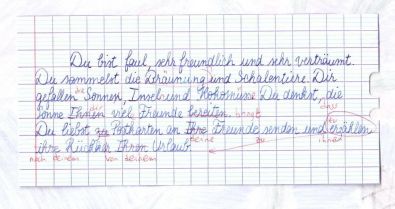 Du bist faul, sehr freundlich und sehr verträumt.
Du sammelst die Bräunung und Schalentiere. Dir
gefallen die Sonnen, Inseln und Kokosnüsse. Du denkst, die
Sonne Ihnen dir viel Freunde bereiten. bringt dass
Du liebst Postkarten an Ihre Freunde senden und erzählen du
ihre Rückkehr Ihrem Urlaub. gerne zu ihnen
nach deinem von deinem